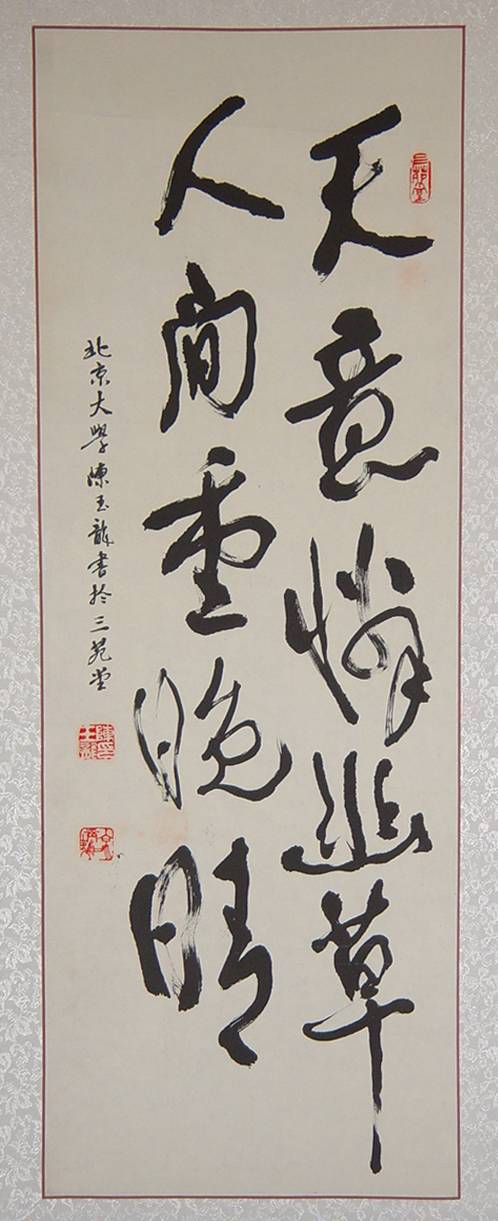 天意憐幽草
人间重晚晴
北京大學陳玉龍書於三苑堂
三苑堂